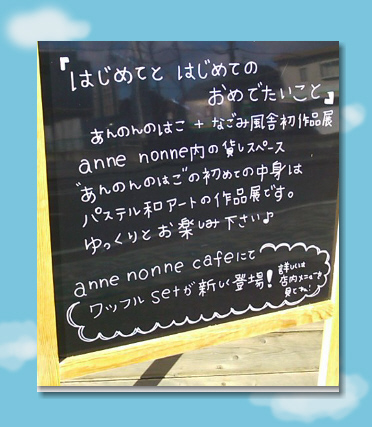 『はじめてと はじめての
おめでたいこと』
あんのんのはこ + なごみ風舎初作品展
anne nonne内の貸しスペース
"あんのんのはこ"の初めての中身は
パステル和アートの作品展です。
ゆっくりとお楽しみ下さい♪
anne nonne cafeにて
ワッフル setが新しく登場!
詳しくは
店内メニューを
見てね!